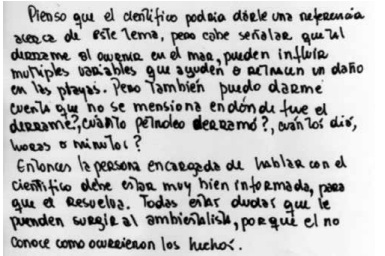 Pienso que el científico podría darle una referencia
acerca de este tema, pero cabe señalar que tal
derrame al ocurrir en el mar, pueden influir
multiples variables que ayuden o retracen un daño
en las playas. Pero también puedo darme
cuenta que no se mensiona en dónde fue el
derrame?, cuánto petroleo derramó?, cuántos días,
horas o minutos?
Entonces la persona encargada de hablar con el
científico debe estar muy bien informada, para
que el resuelva. Todas estas dudas que le
pueden surgir al ambientalista, porque el no
conoce como ocurrieron los hechos.